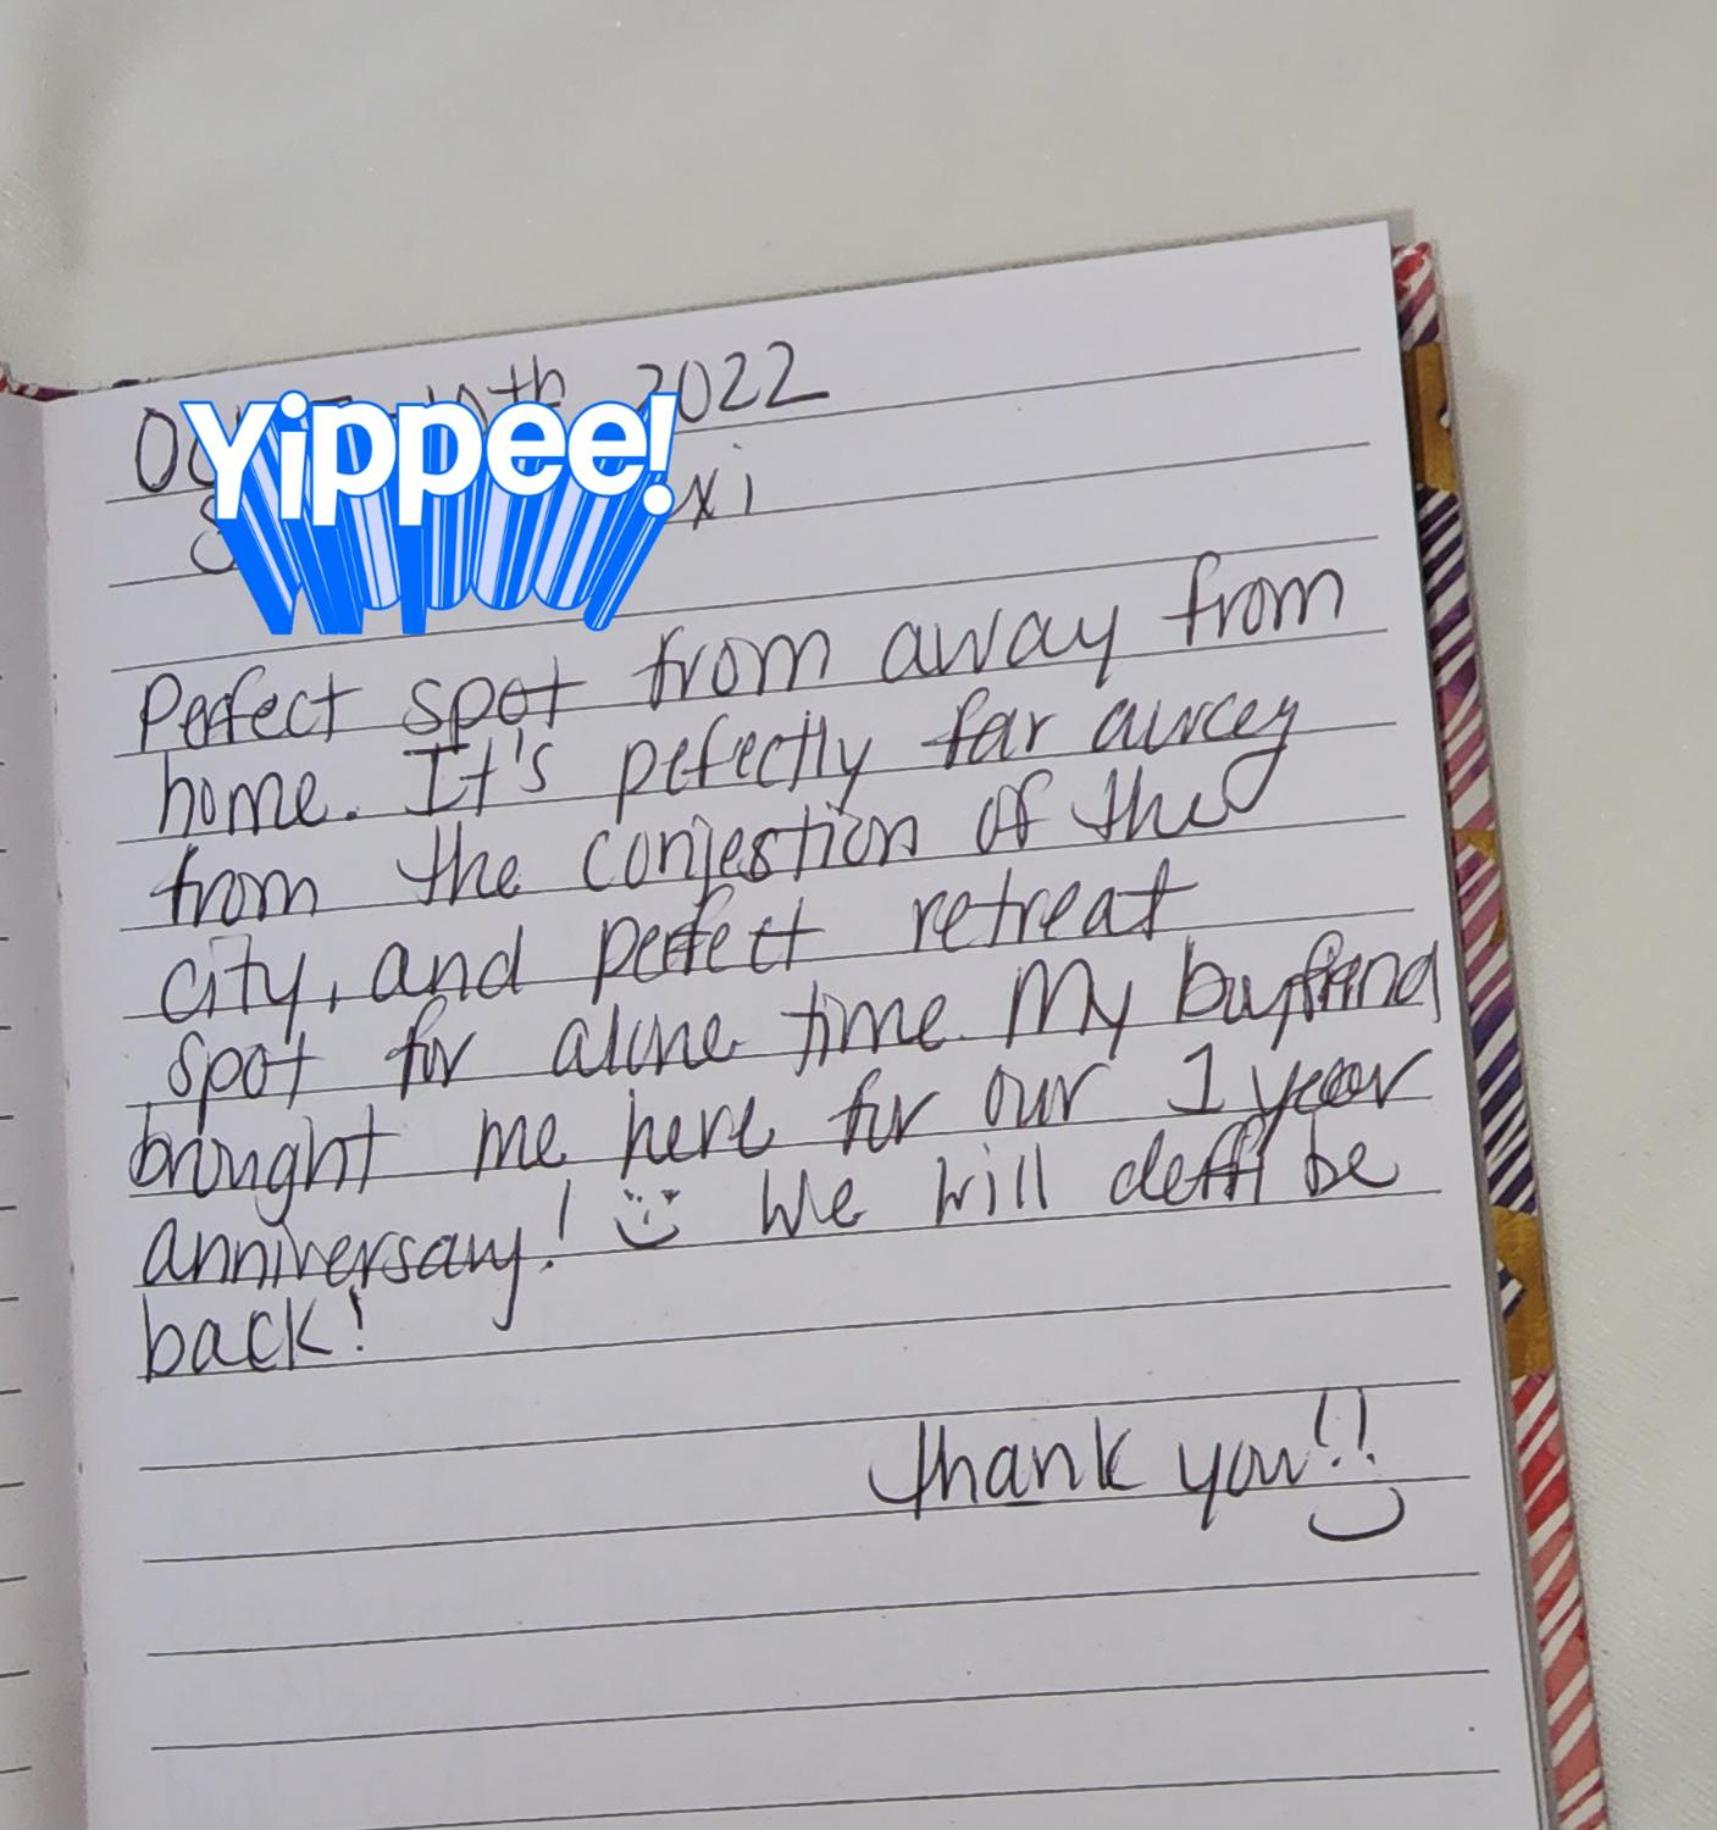 Yippee!
10th 2022
xi
Perfect spot from away from
home. It's pefectly far away
from the conjestion of the
city, and perfect retreat
spot for alone time. My boyfriend
brought me here for our 1 year
anniversary! We will deff be
back!
Thank you!!